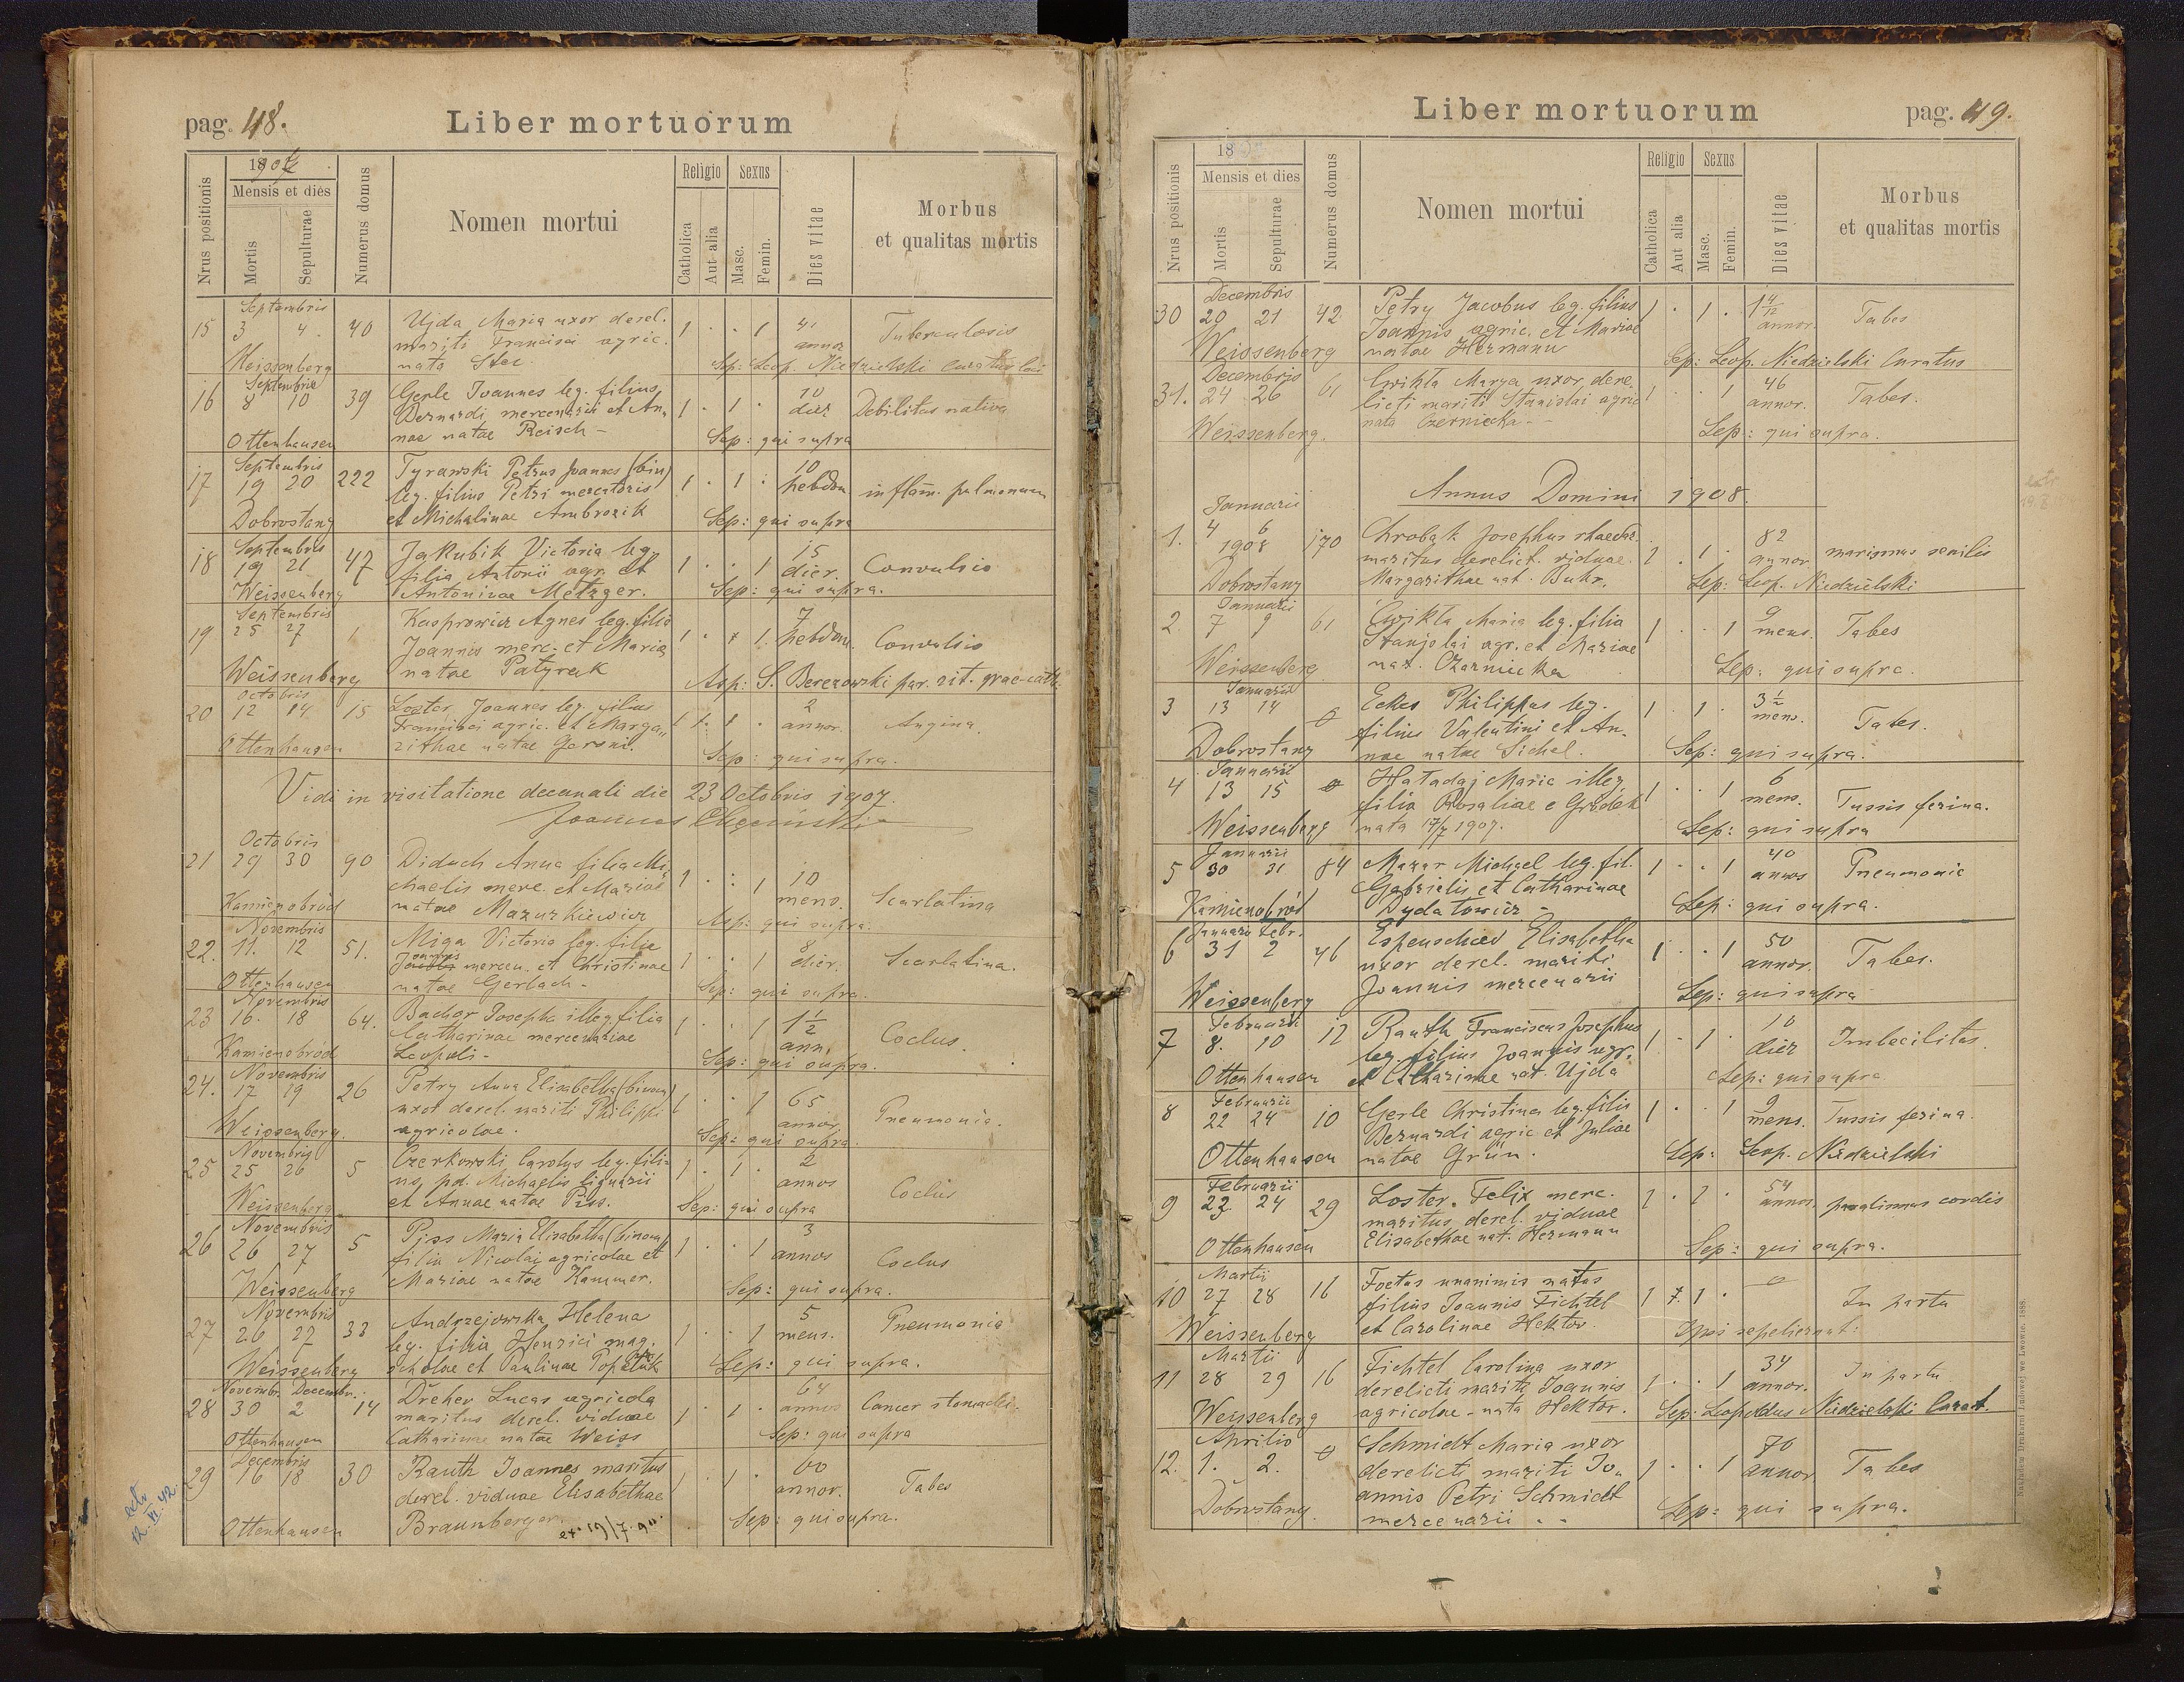 pag. 48.
Liber mortuorum
1907
Nrus positionis
Mensis et dies
Mortis
Sepulturae
Numerus domus
Nomen mortui
Religio
Catholica
Aut alia
Sexus
Masc.
Femin.
Dies vitae
Morbus
et qualitas mortis
Septembris
15 3 4. 40 Ujda Maria uxor derel. 1 · · 1 41 Tuberculosis
mariti Francisci agric. annor
Weissenberg nata Stec Sep: Leop. Niedzielski curatus loci
Septembris
16 8 10 39 Gerle Joannes leg. filius 1 · 1 · 10 Debilitas nativa
Bernardi mercenarii et An- dier
Ottenhausen nae natae Reisch - Sep: qui supra
Septembris
17 19 20 222 Tyrawski Petrus Joannes (bin) 1 · 1 · 10 inflam. pulmonum
leg. filius Petri mercatoris hebdom
Dobrostany et Michalinae Ambrozik Sep: qui supra
Septembris
18 19 21 47 Jakubik Victoria leg. 1 · · 1 15 Convulsio
filia Antonii agr. et dier.
Weissenberg Antoninae Metzger. Sep: qui supra.
Septembris
19 25 27 1 Kasprowicz Agnes leg. filia 1 · · 1. 7 Convulsio
Joannis merc. et Maria hebdom.
Weissenberg natae Patyrak Asp: S. Berezowski par. rit. grae-cath.
Octobris
20 12 14 15 Loster Joannes leg. filius 1 · 1 · 2 Angina.
Francisci agric. et Marga- annor.
Ottenhausen rithae natae Geroni. Sep: qui supra.
Vidi in visitatione decanali die 23 Octobris 1907.
Joannes
Octobris
21 29 30 90 Diduch Anna filia Mi- 1 · · 1 10 Scarlatina
chaelis merc. et Mariae mens.
Kamienobród natae Mazurkiewicz Asp: qui supra.
Novembris
22. 11. 12 51. Miga Victoria leg. filia 1 · · 1 8 Scarlatina.
Joannes mercen. et Christinae dier.
Ottenhausen natae Gerlach - Sep: qui supra.
Novembris
23 16. 18 64. Bachor Josepha illeg. filia 1 · · 1 1 1/2 Coclus.
Catharinae mercenariae ann.
Kamienobród Leopoli - Sep: qui supra.
Novembris
24. 17 19 26 Petry Anna Elisabetha (binom) 1 · · 1 65 Pneumonia.
uxor derel. mariti Philippi annor
Weissenberg. agricolae. Sep: qui supra.
Novembris
25 25 26 5 Czerkowski Carolus leg. fili- 1 · 1 · 2 Coclus
us pd. Michaelis lignarii annos
Weissenberg et Annae natae Piss. Sep: qui supra
Novembris
26 26 27 5 Piss Maria Elisabetha (binom) 1 · · 1 3 Coclus
filia Nicolai agricolae et annos
Weissenberg Mariae natae Kammer. Sep: qui supra.
Novembris
27 26 27 33 Andrzejowska Helena 1 · · 1 5 Pneumonia
leg. filia Henrici mag. mens.
Weissenberg scholae et Paulinae Sep: qui supra.
Novembr. Decembr.
28 30 2 14 Dreher Lucas agricola 1 · 1 · 64 Cancer stomachi.
maritus derel. viduae annos
Ottenhausen Catharinae natae Weiss Sep: qui supra
Decembris
29 16 18 30 Rauth Joannes maritus 1 · 1 · 60 Tabes
derel. viduae Elisabethae annor.
Ottenhausen Braunberger. ex. 19/7. 90. Sep: qui supra.
extr
12. XI. 42.
Liber mortuorum
pag. 49.
18
Nrus positionis
Mensis et dies
Mortis
Sepulturae
Numerus domus
Nomen mortui
Religio
Catholica
Aut alia
Sexus
Masc.
Femin.
Dies vitae
Morbus
et qualitas mortis
Decembris
30 20 21 42 Petry Jacobus leg. filius 1 · 1 · 1 4/12 Tabes
Joannis agric. et Mariae annor.
Weissenberg natae Hermann Sep: Leop. Niedzielski Curatus
Decembris
31. 24 26 61 Cwikła Marya uxor dere- 1 · · 1 46 Tabes.
licti mariti Stanislai agric annor.
Weissenberg. nata Czernicka - - Sep: qui supra.
Annus Domini 1908.
Januarii
1. 4 6 170 Chrobak Josephus 1 · 1 · 82 marasmus senilis
1908 maritus derelict. viduae annor
Dobrostany Margarithae nat. Buhr. Sep: Leop. Niedzielski
Januarii
2 7 9 61 Cwikła Maria leg. filia 1 · · 1 9 Tabes
Stanislai agr. et Mariae mens.
Weissenberg nat. Czarniecka Sep: qui supra.
Januarii
3 13 14 0 Eckes Philippus leg. 1 · 1 · 3 1/2 Tabes.
filius Valentini et An- mens.
Dobrostany nae natae Sichel. Sep: qui supra.
Januarii
4 13 15 0 Hatadaj Maria illeg. 1 · · 1 6 Tussis ferina.
filia Rosaliae e Gródek mens.
Weissenberg nata 17/7 1907. Sep: qui supra
Januarii
5 30 31 84 Mazar Michael leg. fil. 1 · · 1 40 Pneumonia
Gabrielis et Catharinae annos
Kamienobród Dydatowicz - Sep: qui supra.
Januarii Febr.
6 31 2 46 Espenschied Elisabetha 1 · · 1 50 Tabes.
uxor derel. mariti annor.
Weissenberg Joannis mercenarii Sep: qui supra
Februarii
7 8. 10 12 Rauth Franciscus Josephus 1 · 1 · 10 Imbecilitas
leg. filius Joannis agr. dier
Ottenhausen et Catharinae nat. Ujda Sep: qui supra
Februarii
8 22 24 10 Gerle Christina leg. filia 1 · · 1 9 Tussis ferina.
Bernardi agric et Juliae mens.
Ottenhausen natae Grün. Sep: Leop. Niedzielski
Februarii
9 23. 24 29 Loster Felix merc. 1 · 1 · 54 paralismus cordis
maritus derel. viduae annos.
Ottenhausen Elisabethae nat. Hermann Sep: qui supra.
Martii
10 27 28 16 Foetus unanimis natus 1 · 1 · 0 In partu
filius Joannis Fichtel
Weissenberg et Carolinae Hektor. Ipsi sepelierunt.
Martii
11 28 29 16 Fichtel Carolina uxor 1 · · 1 34 In partu
derelicti mariti Joannis annor.
Weissenberg agricolae - nata Hektor. Sep: Leopoldus Niedzielski Curat.
Aprilis
12. 1. 2. 0 Schmidt Maria uxor 1 · · 1 70 Tabes
derelicti mariti Jo- annor
annis Petri Schmidt
Dobrostany. mercenarii - - Sep: qui supra.
Nakładem Drukarni Ludowej we Lwowie. 1898.